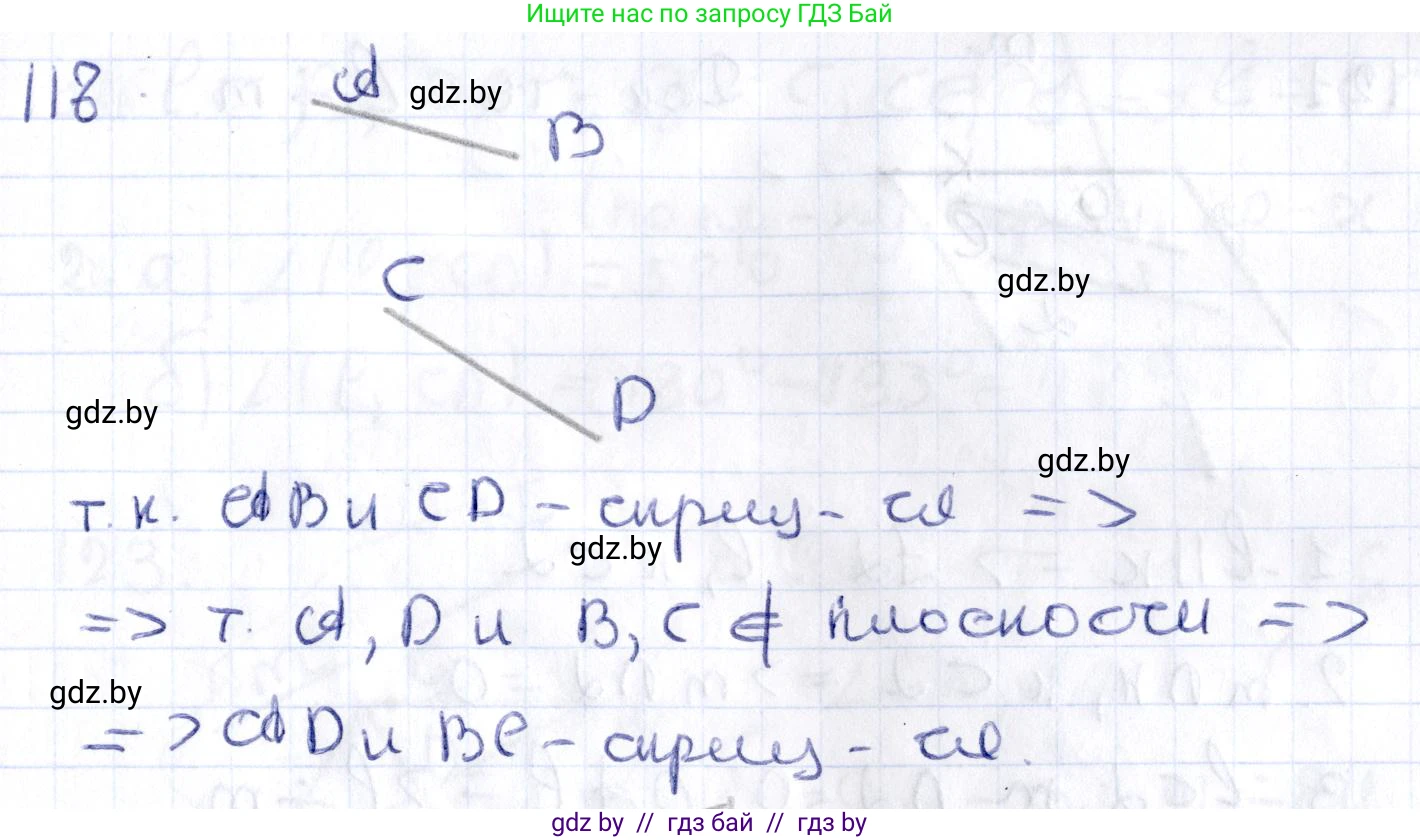 Ищите нас по запросу ГДЗ Бай
118.
A gdz.by
B
C
gdz.by
D
gdz.by
gdz.by
т.к. AB и CD - скрещ-ся =>
gdz.by
=> т. A, D и B, C ∉ плоскости =>
gdz.by
=> AD и BC - скрещ-ся.
gdz by // гдз бай // гдз by